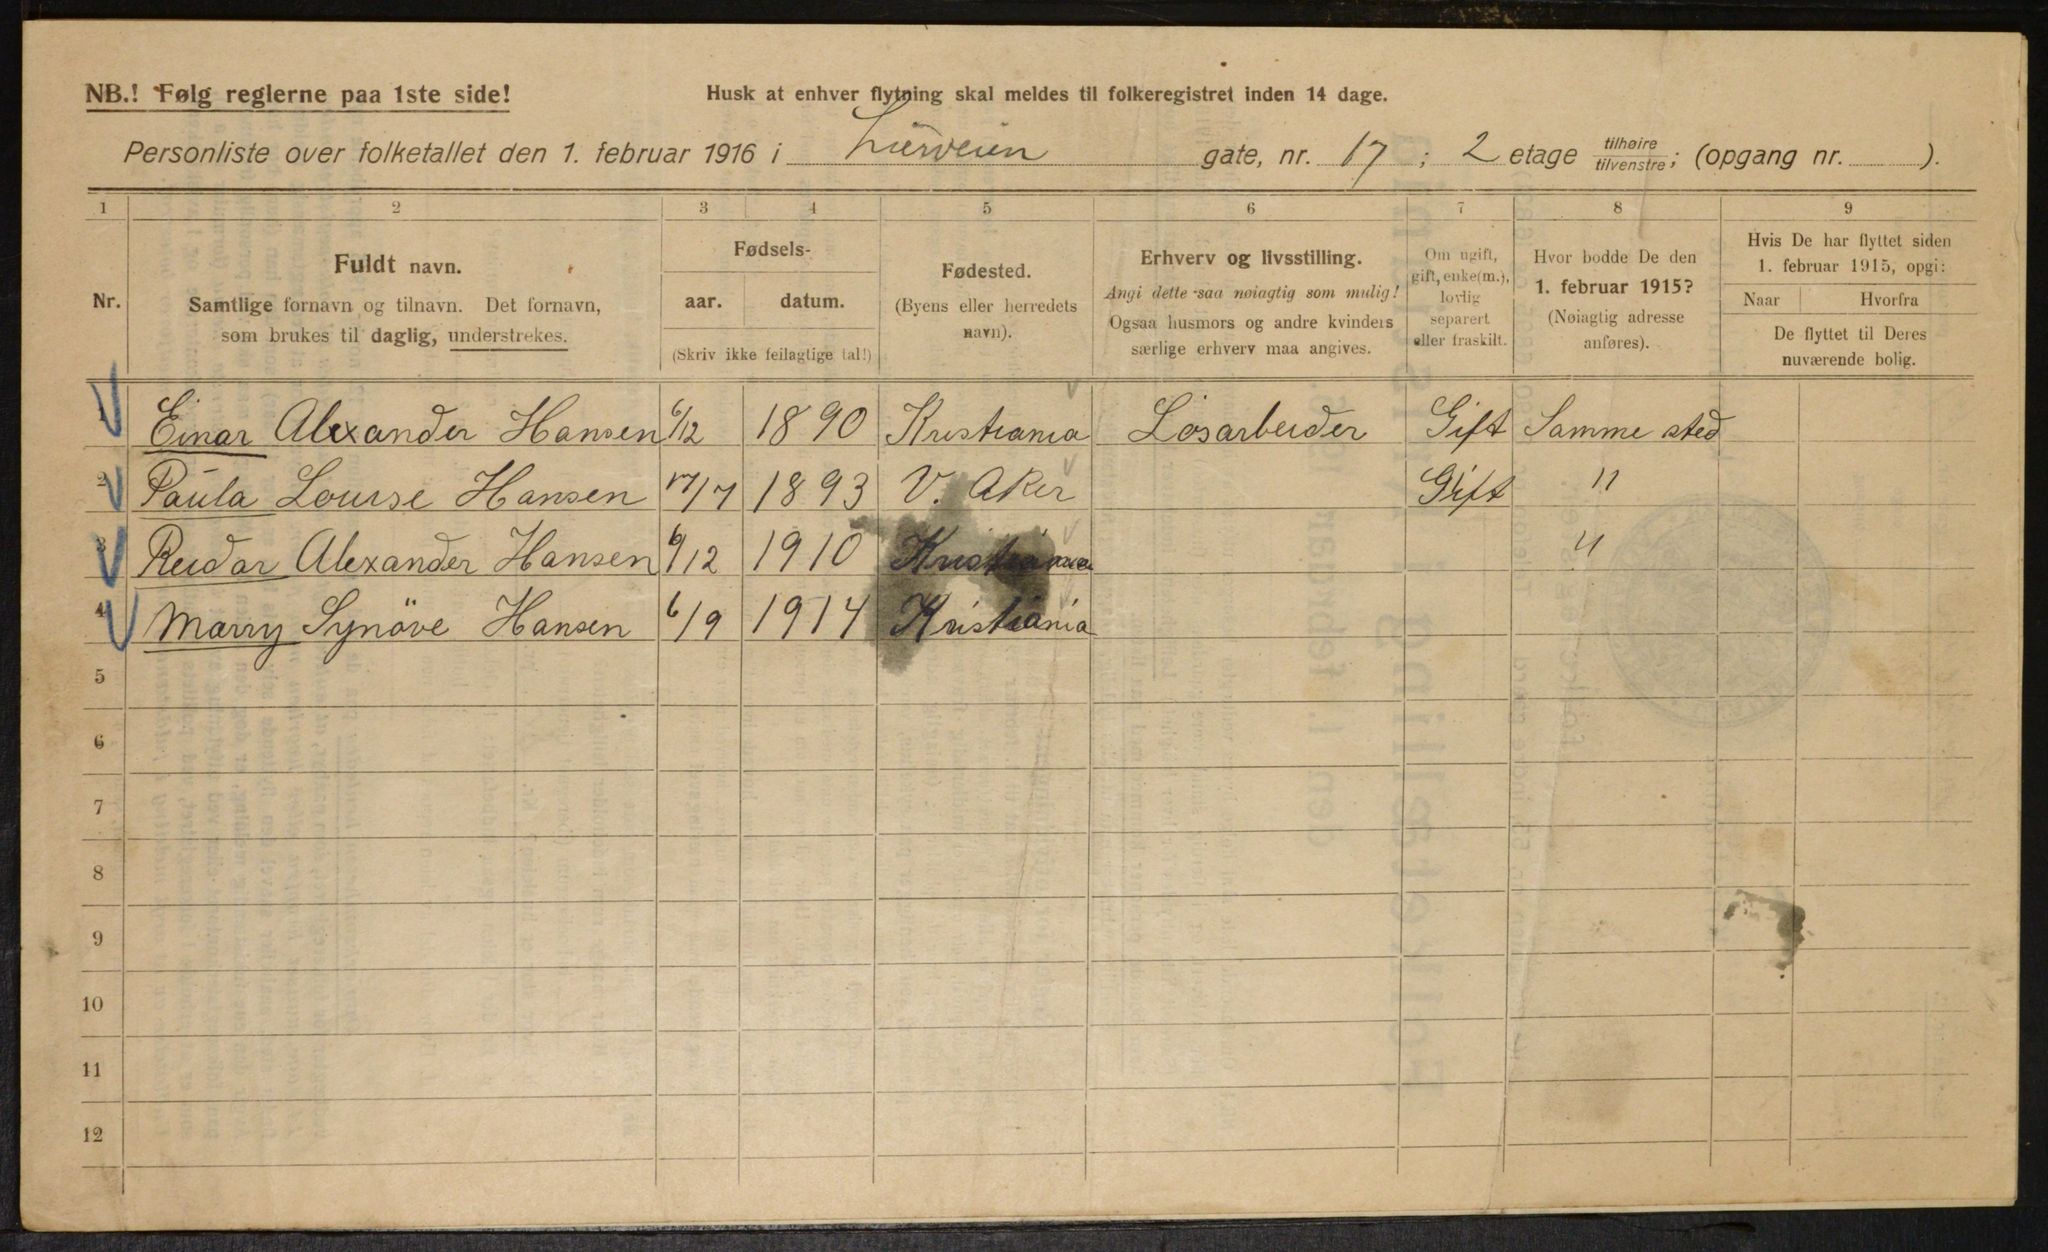 NB.! Følg reglerne paa 1ste side!
Husk at enhver flytning skal meldes til folkeregistret inden 14 dage.
Personliste over folketallet den 1. februar 1916 i Lierveien gate, nr. 17; 2 etage tilhøire/tilvenstre; (opgang nr. ).
1 2 3 4 5 6 7 8 9
Nr.
Fuldt navn.
Samtlige fornavn og tilnavn. Det fornavn,
som brukes til daglig, understrekes.
Fødsels-
aar. datum.
(Skriv ikke feilagtige tal!)
Fødested.
(Byens eller herredets
navn).
Erhverv og livsstilling.
Angi dette saa nøiagtig som mulig!
Ogsaa husmors og andre kvinders
særlige erhverv maa angives.
Om ugift,
gift, enke(m.),
lovlig
separert
eller fraskilt.
Hvor bodde De den
1. februar 1915?
(Nøiagtig adresse
anføres).
Hvis De har flyttet siden
1. februar 1915, opgi:
Naar Hvorfra
De flyttet til Deres
nuværende bolig.
1 Einar Alexander Hansen 6/12 1890 Kristiania Løsarbeider Gift Samme sted
2 Paula Louise Hansen 17/7 1893 V. Aker Gift "
3 Reidar Alexander Hansen 6/12 1910 Kristiania "
4 Marry Synöve Hansen 6/9 1914 Kristiania
5
6
7
8
9
10
11
12